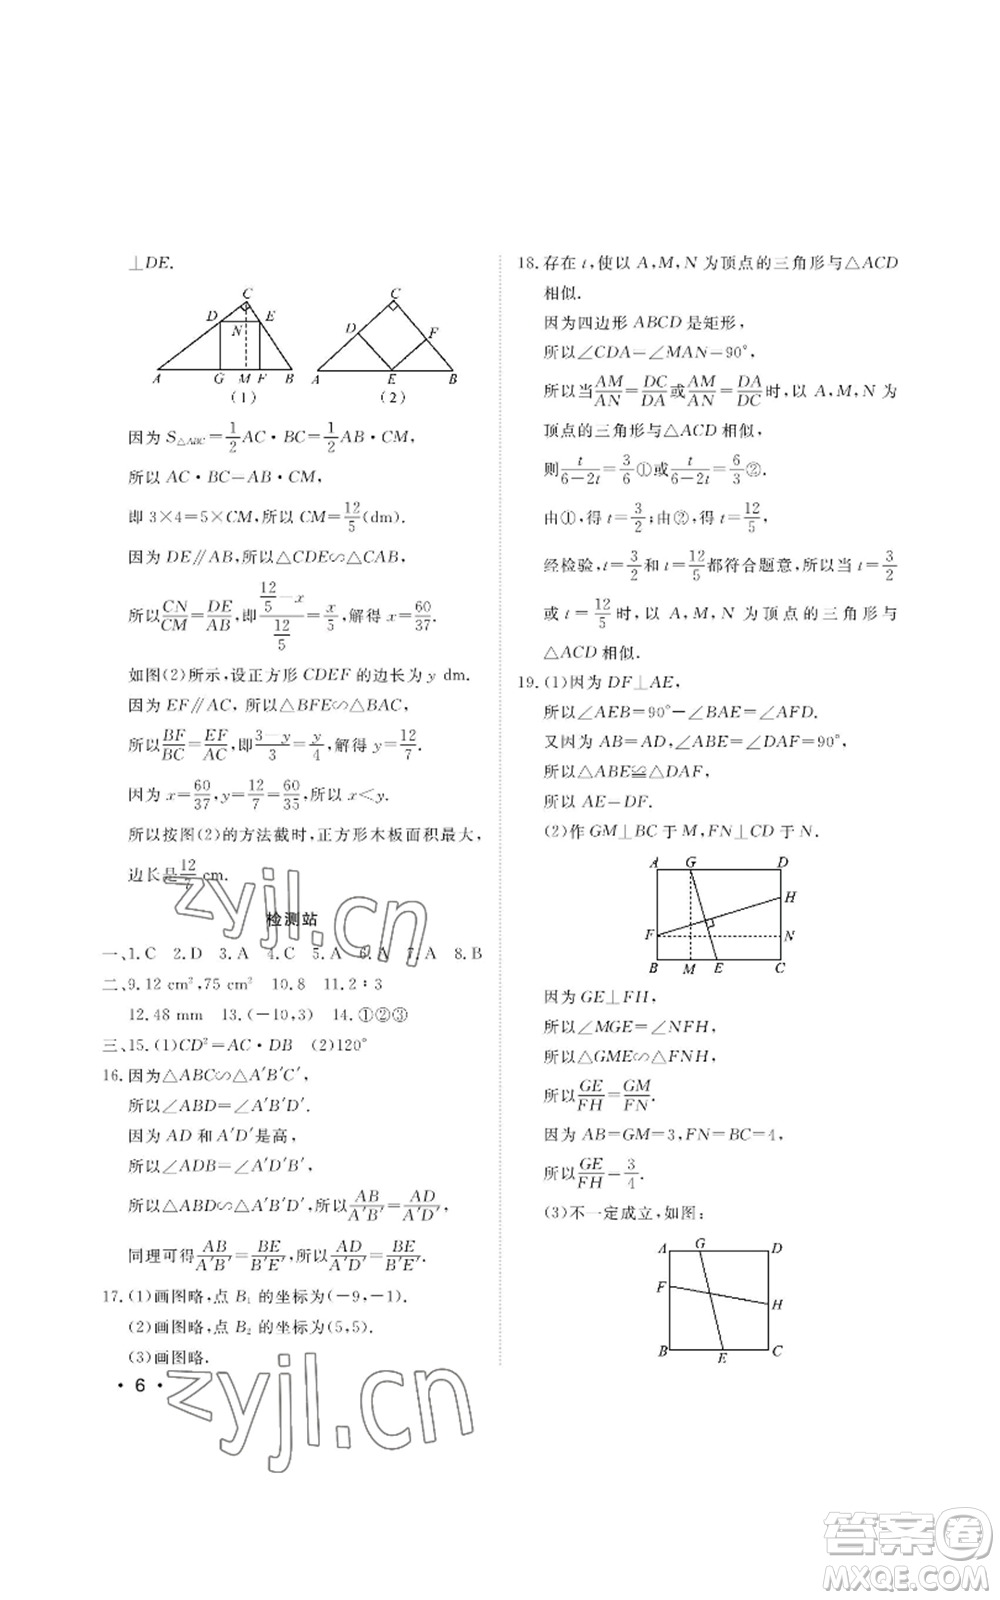 ⊥DE.
C
D E
N
A G M F B
(1)
C
D F
A E B
(2)
因为 S△ABC=1/2AC·BC=1/2AB·CM,
所以 AC·BC=AB·CM,
即 3×4=5×CM,所以 CM=12/5(dm).
因为 DE∥AB,所以△CDE∽△CAB,
所以CN/CM=DE/AB,即(12/5−x)/(12/5)=x/5,解得 x=60/37.
如图(2)所示,设正方形 CDEF 的边长为 y dm.
因为 EF∥AC,所以△BFE∽△BAC,
所以BF/BC=EF/AC,即(3−y)/3=y/4,解得 y=12/7.
因为 x=60/37,y=12/7=60/35,所以 x<y.
所以按图(2)的方法截时,正方形木板面积最大,
边长是12/7 cm.
检测站
一、1.C 2.D 3.A 4.C 5.A 6.A 7.A 8.B
二、9.12 cm²,75 cm² 10.8 11.2∶3
12.48 mm 13.(−10,3) 14.①②③
三、15.(1)CD²=AC·DB (2)120°
16.因为△ABC∽△A′B′C′,
所以∠ABD=∠A′B′D′.
因为 AD 和 A′D′是高,
所以∠ADB=∠A′D′B′,
所以△ABD∽△A′B′D′,所以AB/A′B′=AD/A′D′,
同理可得AB/A′B′=BE/B′E′,所以AD/A′D′=BE/B′E′.
17.(1)画图略,点 B₁ 的坐标为(−9,−1).
(2)画图略,点 B₂ 的坐标为(5,5).
(3)画图略.
· 6 ·
18.存在 t,使以 A,M,N 为顶点的三角形与△ACD
相似.
因为四边形 ABCD 是矩形,
所以∠CDA=∠MAN=90°,
所以当AM/AN=DC/DA或AM/AN=DA/DC时,以 A,M,N 为
顶点的三角形与△ACD 相似,
则t/(6−2t)=3/6①或t/(6−2t)=6/3②.
由①,得 t=3/2;由②,得 t=12/5,
经检验,t=3/2和 t=12/5都符合题意,所以当 t=3/2
或 t=12/5时,以 A,M,N 为顶点的三角形与
△ACD 相似.
19.(1)因为 DF⊥AE,
所以∠AEB=90°−∠BAE=∠AFD.
又因为 AB=AD,∠ABE=∠DAF=90°,
所以△ABE≌△DAF,
所以 AE=DF.
(2)作 GM⊥BC 于 M,FN⊥CD 于 N.
A G D
H
F N
B M E C
因为 GE⊥FH,
所以∠MGE=∠NFH,
所以△GME∽△FNH,
所以GE/FH=GM/FN.
因为 AB=GM=3,FN=BC=4,
所以GE/FH=3/4.
(3)不一定成立,如图:
A G D
F
H
B E C
zyjl.cn
zyjl.cn
答案卷
MXQE.COM